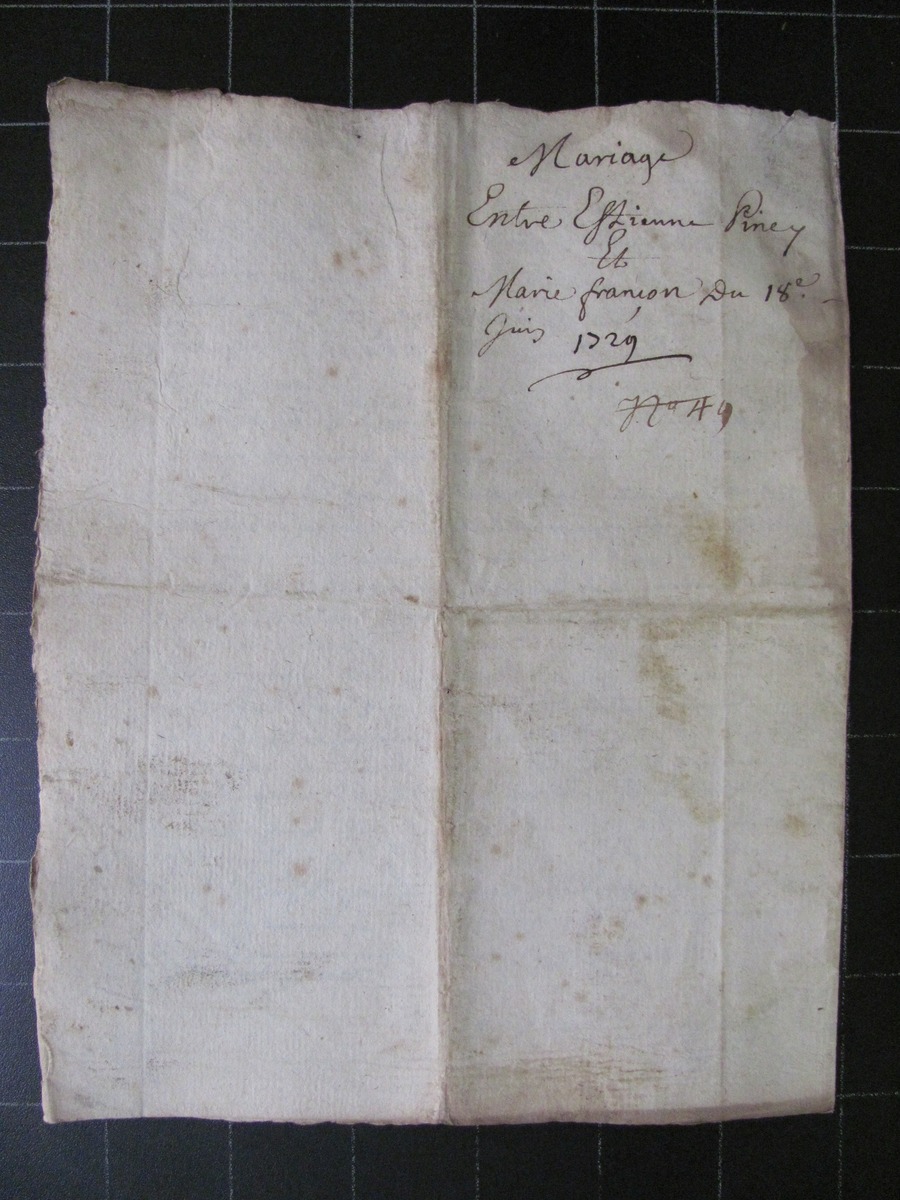 Mariage
Entre Estienne Piney
Et
Marie françon Du 18e.
Juin 1729
No 49